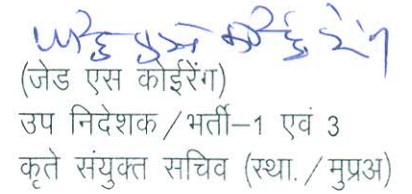 (जेड एस कोईरेंग)
उप निदेशक/भर्ती–1 एवं 3
कृते संयुक्त सचिव (स्था./मुप्रअ)